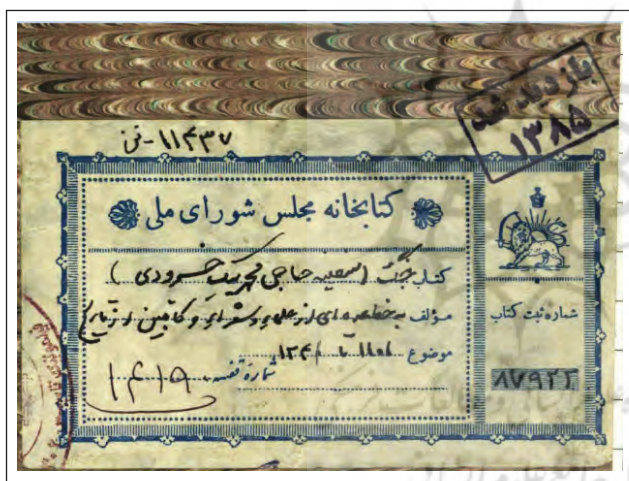 بازدید شد
۱۳۸۵
۱۱۴۳۷-فن
کتابخانه مجلس شورای ملی
کتاب جنگ (سفینه حاجی محمد بیک خسرودی)
مؤلف به خط عده‌ای از علما و شعراء و کاتبین از تاریخ
موضوع ۱۱۰۱ تا ۱۲۴۱
شماره قفسه ۱۴۱۵
شماره ثبت کتاب
۸۷۹۲۲